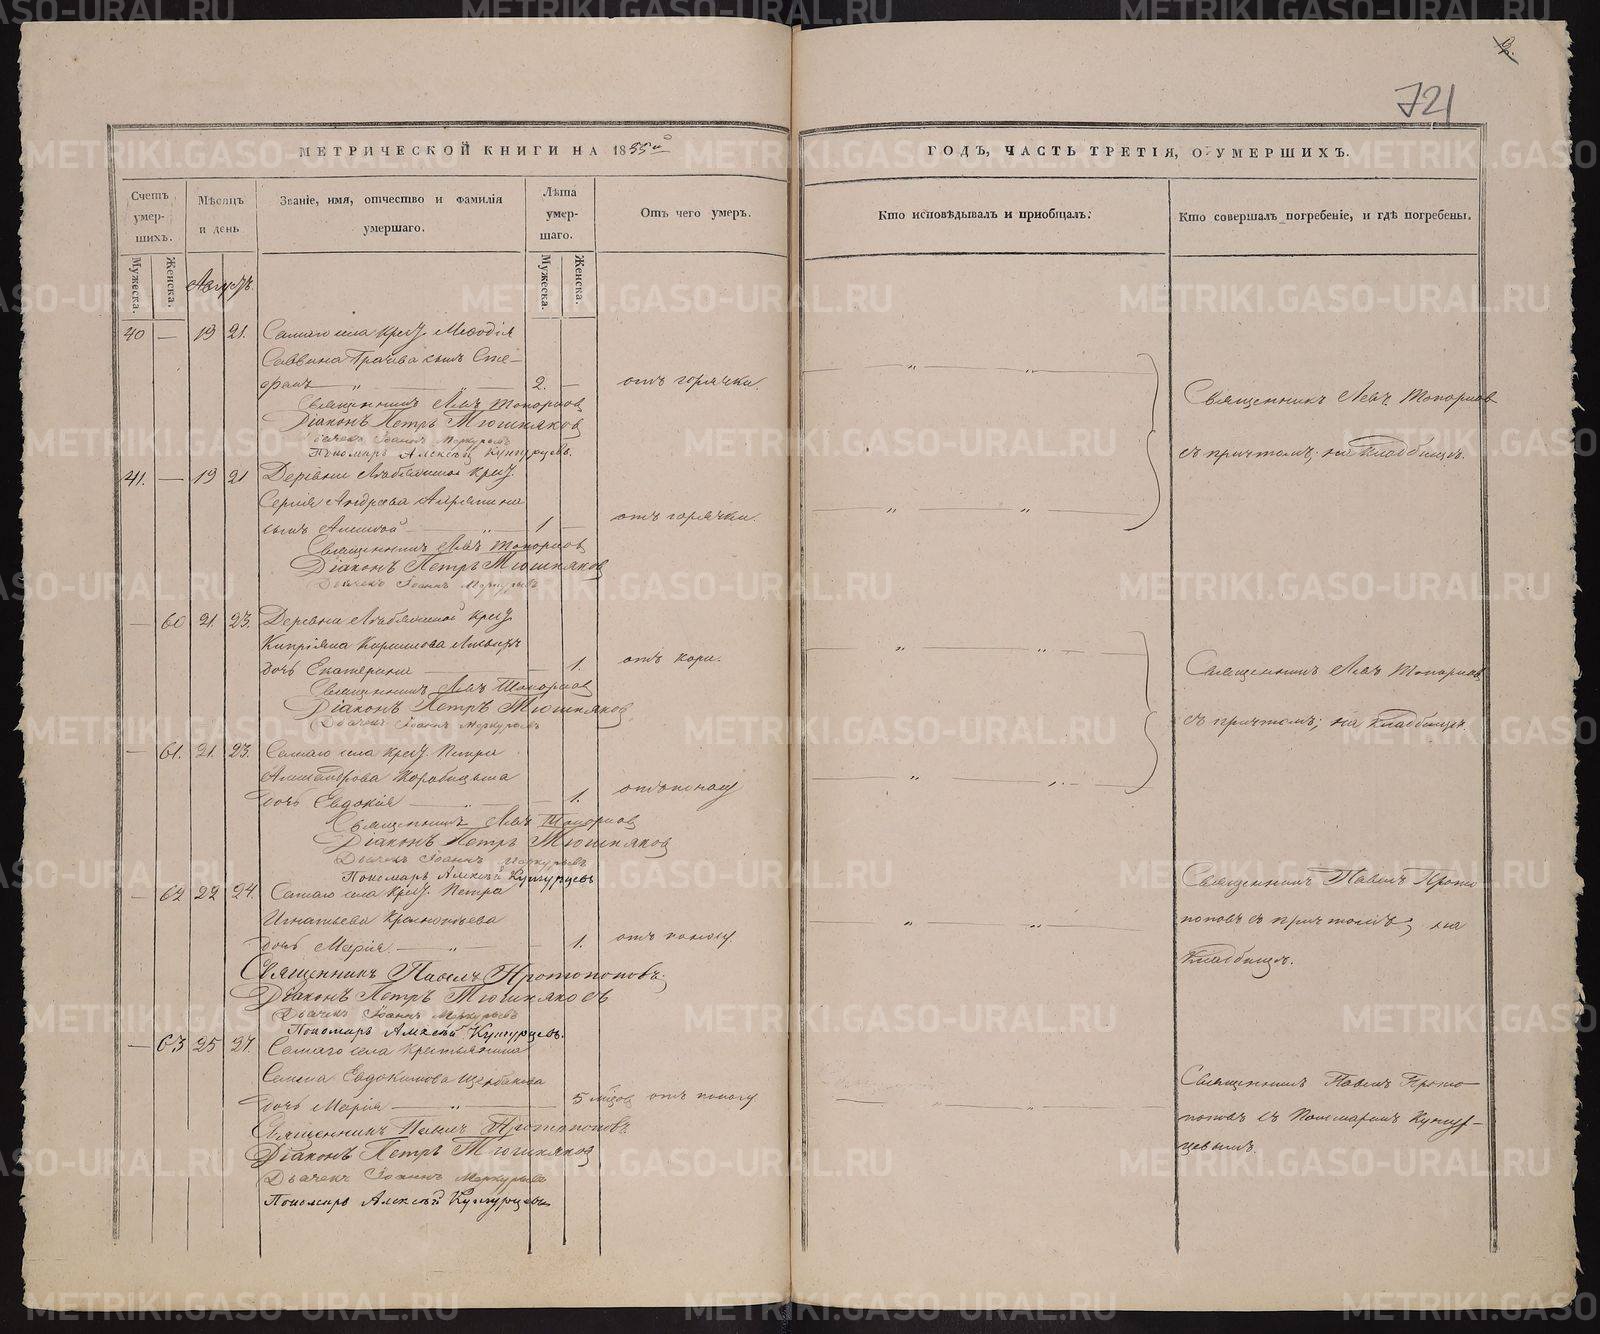 721
МЕТРИЧЕСКОЙ КНИГИ НА 1855й
ГОДЪ, ЧАСТЬ ТРЕТІЯ, О УМЕРШИХЪ.
Счетъ умер-шихъ.
Мѣсяцъ и день
Званіе, имя, отчество и фамилія умершаго.
Лѣта умер-шаго.
Отъ чего умеръ.
Кто исповѣдывалъ и пріобщалъ.
Кто совершалъ погребеніе, и гдѣ погребены.
Мужеска.
Женска.
Августъ.
Мужеска.
Женска.
40 — 19 21. Самаго села Крес. Меѳодія
Саввина сынъ Сте-
фанъ 2. — отъ горячки.
Священникъ Левъ Топорковъ
Діаконъ Петръ Тюшняковъ
Дьячекъ Іоаннъ Меркурьевъ
Пономарь Алексѣй Кунгурцевъ.
Священникъ Левъ Топорковъ
съ причтомъ; на кладбищѣ.
41. — 19 21 Деревни Крес.
Сергія Андреева
сынъ Алексѣй 1 — отъ горячки.
Священникъ Левъ Топорковъ
Діаконъ Петръ Тюшняковъ
Дьячекъ Іоаннъ Меркурьевъ
— 60 21. 23. Деревни Крес.
Кипріяна Кирилова
дочь Екатерина — 1. отъ кори.
Священникъ Левъ Топорковъ
Діаконъ Петръ Тюшняковъ
Дьячекъ Іоаннъ Меркурьевъ
Священникъ Левъ Топорковъ
съ причтомъ; на кладбищѣ.
— 61. 21. 23. Самаго села Крес. Петра
Александрова Коробицына
дочь Евдокія — 1. отъ поносу
Священникъ Левъ Топорковъ
Діаконъ Петръ Тюшняковъ
Дьячекъ Іоаннъ Меркурьевъ
Пономарь Алексѣй Кунгурцевъ
— 62 22 24. Самаго села Крес. Петра
Игнатьева
дочь Марія — 1. отъ поносу.
Священникъ Павелъ Протопоповъ.
Діаконъ Петръ Тюшняковъ
Дьячекъ Іоаннъ Меркурьевъ
Пономарь Алексѣй Кунгурцевъ.
Священникъ Павелъ Прото
поповъ съ причтомъ; на
кладбищѣ.
— 63 25 27. Самаго села Крестьянина
Семена Евдокимова Щербакова
дочь Марія 5 мѣсяц отъ поносу
Священникъ Павелъ Протопоповъ
Діаконъ Петръ Тюшняковъ
Дьячекъ Іоаннъ Меркурьевъ
Пономарь Алексѣй Кунгурцевъ
Священникъ Павелъ Прото
поповъ съ Пономаремъ Кунгур-
цевымъ.
METRIKI.GASO-URAL.RU